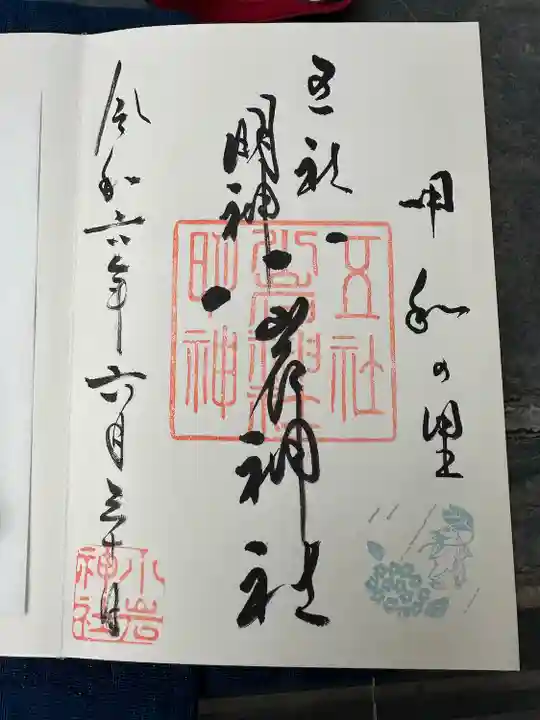 甲和の里
五社
明神
小岩神社
令和六年六月三十日
五社
小岩神社
明神
小岩
神社